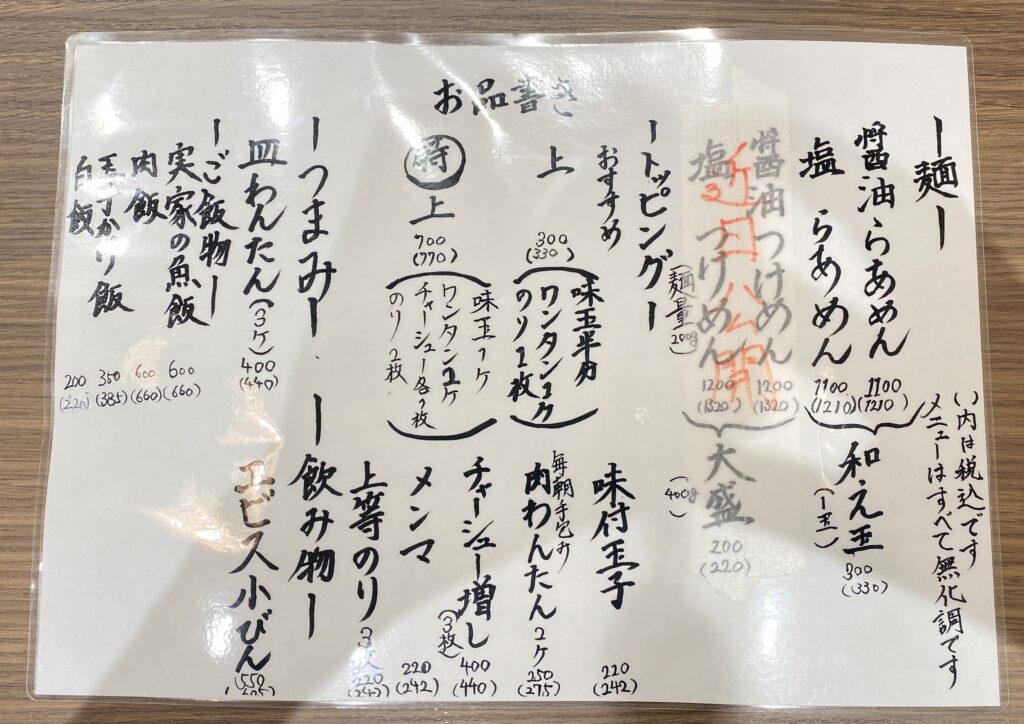 お品書き
ー麺ー
醤油らあめん 1100 (1210)
塩らあめん 1100 (1210)
和え玉 (一玉) 300 (330)
( )内は税込です
メニューはすべて無化調です
近日公開
醤油つけめん 1200 (1320)
塩つけめん 1200 (1320)
(麺量200g)
大盛 200 (220)
(400g)
ートッピングー
おすすめ
上 300 (330)
味玉半分
ワンタン1ケ
のり1枚
特上 700 (770)
味玉1ケ
ワンタン2ケ
チャーシュー各1枚
のり2枚
味付玉子 220 (242)
毎朝手包み
肉わんたん 2ケ 250 (275)
チャーシュー増し (3枚) 400 (440)
メンマ 220 (242)
上等のり 3枚 220 (242)
ーつまみー
皿わんたん (3ケ) 400 (440)
ー飲み物ー
エビス小びん 550
ーご飯物ー
実家の魚飯 600 (660)
肉飯 600 (660)
350 (385)
白飯 200 (220)